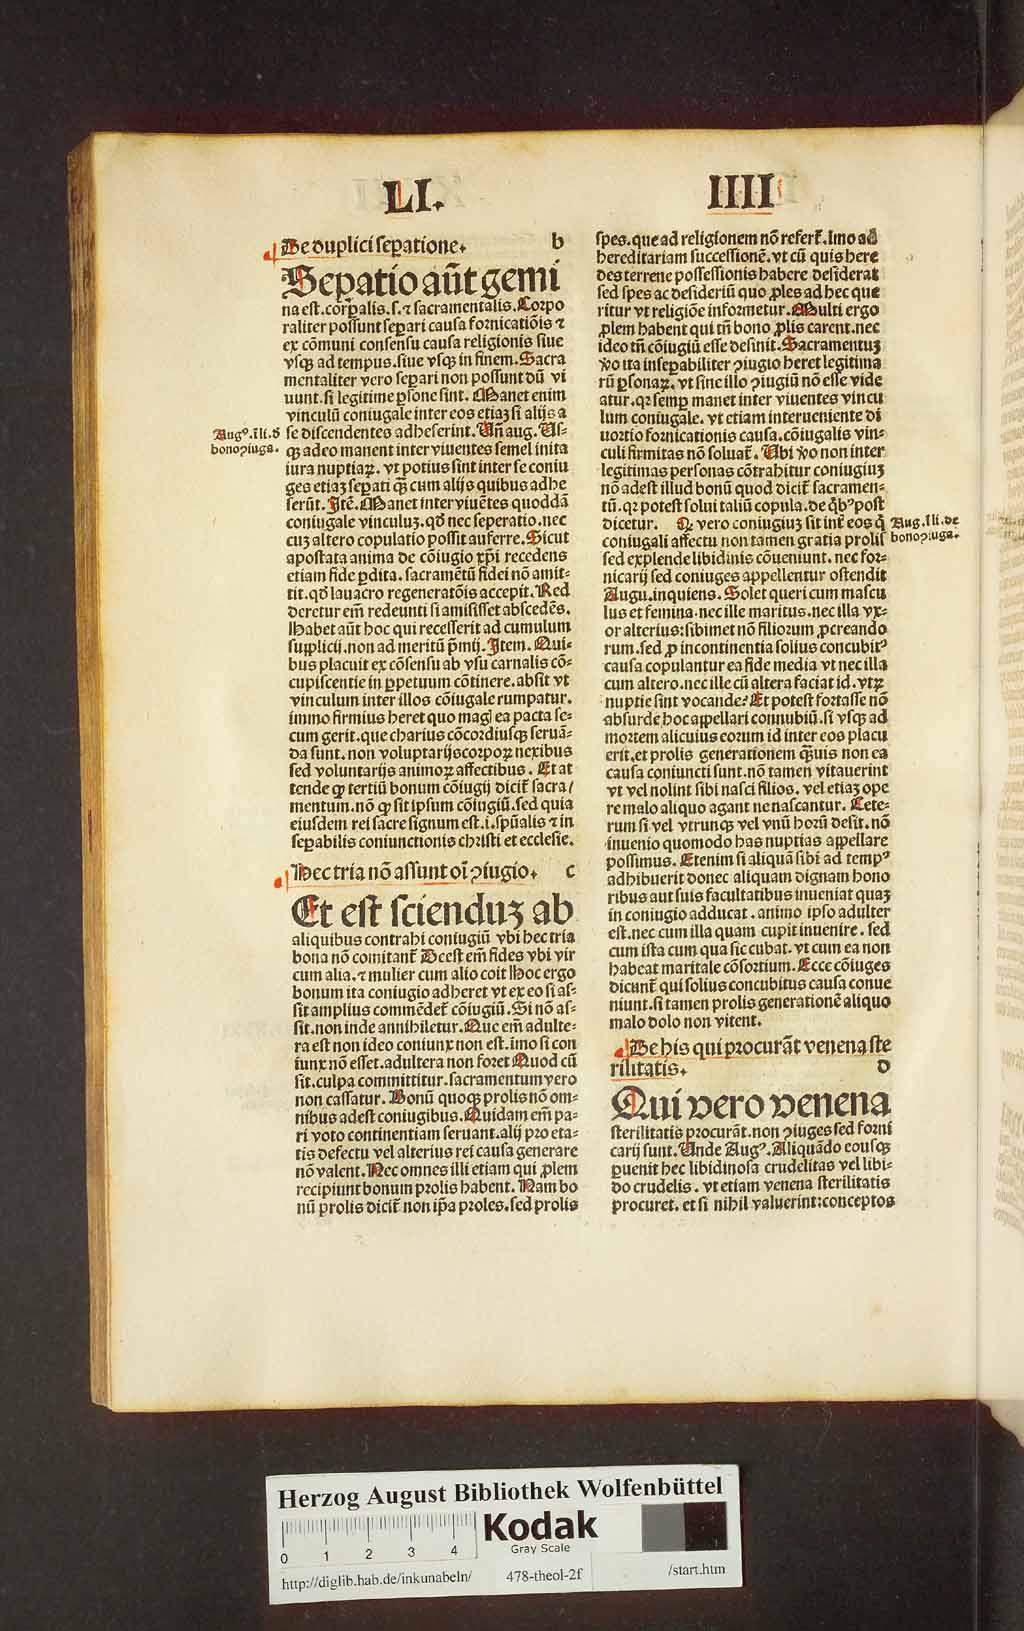 LI.
IIII
De duplici seꝑatione. b
Seꝑatio aūt gemi
na est. corꝑalis. s. ⁊ sacramentalis. Corpo
raliter possunt seꝑari causa fornicatiōis ⁊
ex cōmuni consensu causa religionis siue
vsq̢ ad tempus. siue vsq̢ in finem. Sacra
mentaliter vero seꝑari non possunt dū vi
uunt. si legitime ꝑsone sint. Manet enim
vinculū coniugale inter eos etiaꝫ si alijs a
se discendentes adheserint. Vn̄ aug. Vs-
q̢ adeo manent inter viuentes semel inita
iura nuptiaꝝ. vt potius sint inter se coniu
ges etiaꝫ seꝑati q̄ꝫ cum alijs quibus adhe
serūt. Itē. Manet inter viuētes quoddā
coniugale vinculuꝫ. qd̄ nec seperatio. nec
cuꝫ altero copulatio possit auferre. Sicut
apostata anima de cōiugio xp̄i recedens
etiam fide ꝑdita. sacramētū fidei nō amit-
tit. qd̄ lauacro regeneratōis accepit. Red
deretur em̄ redeunti si amisisset abscedēs.
Habet aūt hoc qui recesserit ad cumulum
suꝑplicij. non ad meritū p̄mij. Item. Qui-
bus placuit ex cōsensu ab vsu carnalis cō-
cupiscentie in ꝑpetuum cōtinere. absit vt
vinculum inter illos cōiugale rumpatur.
immo firmius heret quo magꝭ ea pacta se-
cum gerit. que charius cōcordiusq̢ seruā-
da sunt. non voluptarijs corpoꝝ nexibus
sed voluntarijs animoꝝ affectibus. Et at
tende ꝙ tertiū bonum cōiugij dicit̄ sacra/
mentum. nō ꝙ sit ipsum cōiugiū. sed quia
eiusdem rei sacre signum est. i. spūalis ⁊ in
seꝑabilis coniunctionis christi et ecclesie.
Hec tria nō assunt oī ꝯiugio. c
Et est scienduꝫ ab
aliquibus contrahi coniugiū vbi hec tria
bona nō comitant̄ Deest em̄ fides vbi vir
cum alia. ⁊ mulier cum alio coit Hoc ergo
bonum ita coniugio adheret vt ex eo si as-
sit amplius commēdet̄ cōiugiū. Si nō as-
sit. non inde annihiletur. Auc em̄ adulte-
ra est non ideo coniunx non est. īmo si con
iunx nō esset. adultera non foret Quod cū
sit. culpa committitur. sacramentum vero
non cassatur. Bonū quoq̢ prolis nō om-
nibus adest coniugibus. Quidam em̄ pa-
ri voto continentiam seruant. alij pro eta-
tis defectu vel alterius rei causa generare
nō valent. Nec omnes illi etiam qui ꝓlem
recipiunt bonum prolis habent. Nam bo
nū prolis dicit̄ non ip̄a proles. sed prolis
Augꝰ. ī li. d̄
bono ꝯiuga.
spes. que ad religionem nō refert̄. Imo ad
hereditariam successionē. vt cū quis here
des terrene possessionis habere desiderat
sed spes ac desideriū quo ꝓles ad hec que
ritur vt religiōe informetur. Multi ergo
ꝓlem habent qui tn̄ bono ꝓlis carent. nec
ideo tn̄ cōiugiū esse desinit. Sacramentuꝫ
ꝟo ita inseꝑabiliter ꝯiugio heret legitima
rū ꝑsonaꝝ. vt sine illo ꝯiugiū nō esse vide
atur. qꝛ semꝑ manet inter viuentes vincu
lum coniugale. vt etiam interueniente di
uortio fornicationis causa. cōiugalis vin-
culi firmitas nō soluat̄. Vbi ꝟo non inter
legitimas personas cōtrahitur coniugiuꝫ
nō adest illud bonū quod dicit̄ sacramen-
tū. qꝛ potest solui taliū copula. de q̄bꝰ post
dicetur. Q̄ vero coniugiuꝫ sit int̄ eos q̄
coniugali affectu non tamen gratia prolis
sed explende libidinis cōueniunt. nec for-
nicarij sed coniuges appellentur ostendit
Augu. inquiens. Solet queri cum mascu
lus et femina. nec ille maritus. nec illa vx-
or alterius: sibimet nō filiorum ꝓcreando
rum. sed ꝓ incontinentia solius concubitꝰ
causa copulantur ea fide media vt nec illa
cum altero. nec ille cū altera faciat id. vtꝝ
nuptie sint vocande? Et potest fortasse nō
absurde hoc appellari connubiū. si vsq̢ ad
mortem alicuius eorum id inter eos placu
erit. et prolis generationem q̄uis non ea
causa coniuncti sunt. nō tamen vitauerint
vt vel nolint sibi nasci filios. vel etiaꝫ ope
re malo aliquo agant ne nascantur. Cete-
rum si vel vtrunq̢ vel vnū horū desit. nō
inuenio quomodo has nuptias appellare
possimus. Etenim si aliquā sibi ad tempꝰ
adhibuerit donec aliquam dignam hono
ribus aut suis facultatibus inueniat quaꝫ
in coniugio adducat. animo ipso adulter
est. nec cum illa quam cupit inuenire. sed
cum ista cum qua sic cubat. vt cum ea non
habeat maritale cōsortium. Ecce cōiuges
dicunt̄ qui solius concubitus causa conue
niunt. si tamen prolis generationē aliquo
malo dolo non vitent.
De his qui procurāt venena ste
rilitatis. d
Qui vero venena
sterilitatis procurāt. non ꝯiuges sed forni
carij sunt. Unde Augꝰ. Aliquādo eousq̢
ꝑuenit hec libidinosa crudelitas vel libi-
do crudelis. vt etiam venena sterilitatis
procuret. et si nihil valuerint: conceptos
Aug. ī li. de
bono ꝯiuga.
Herzog August Bibliothek Wolfenbüttel
Kodak
Gray Scale
0 1 2 3 4
http://diglib.hab.de/inkunabeln/ 478-theol-2f /start.htm